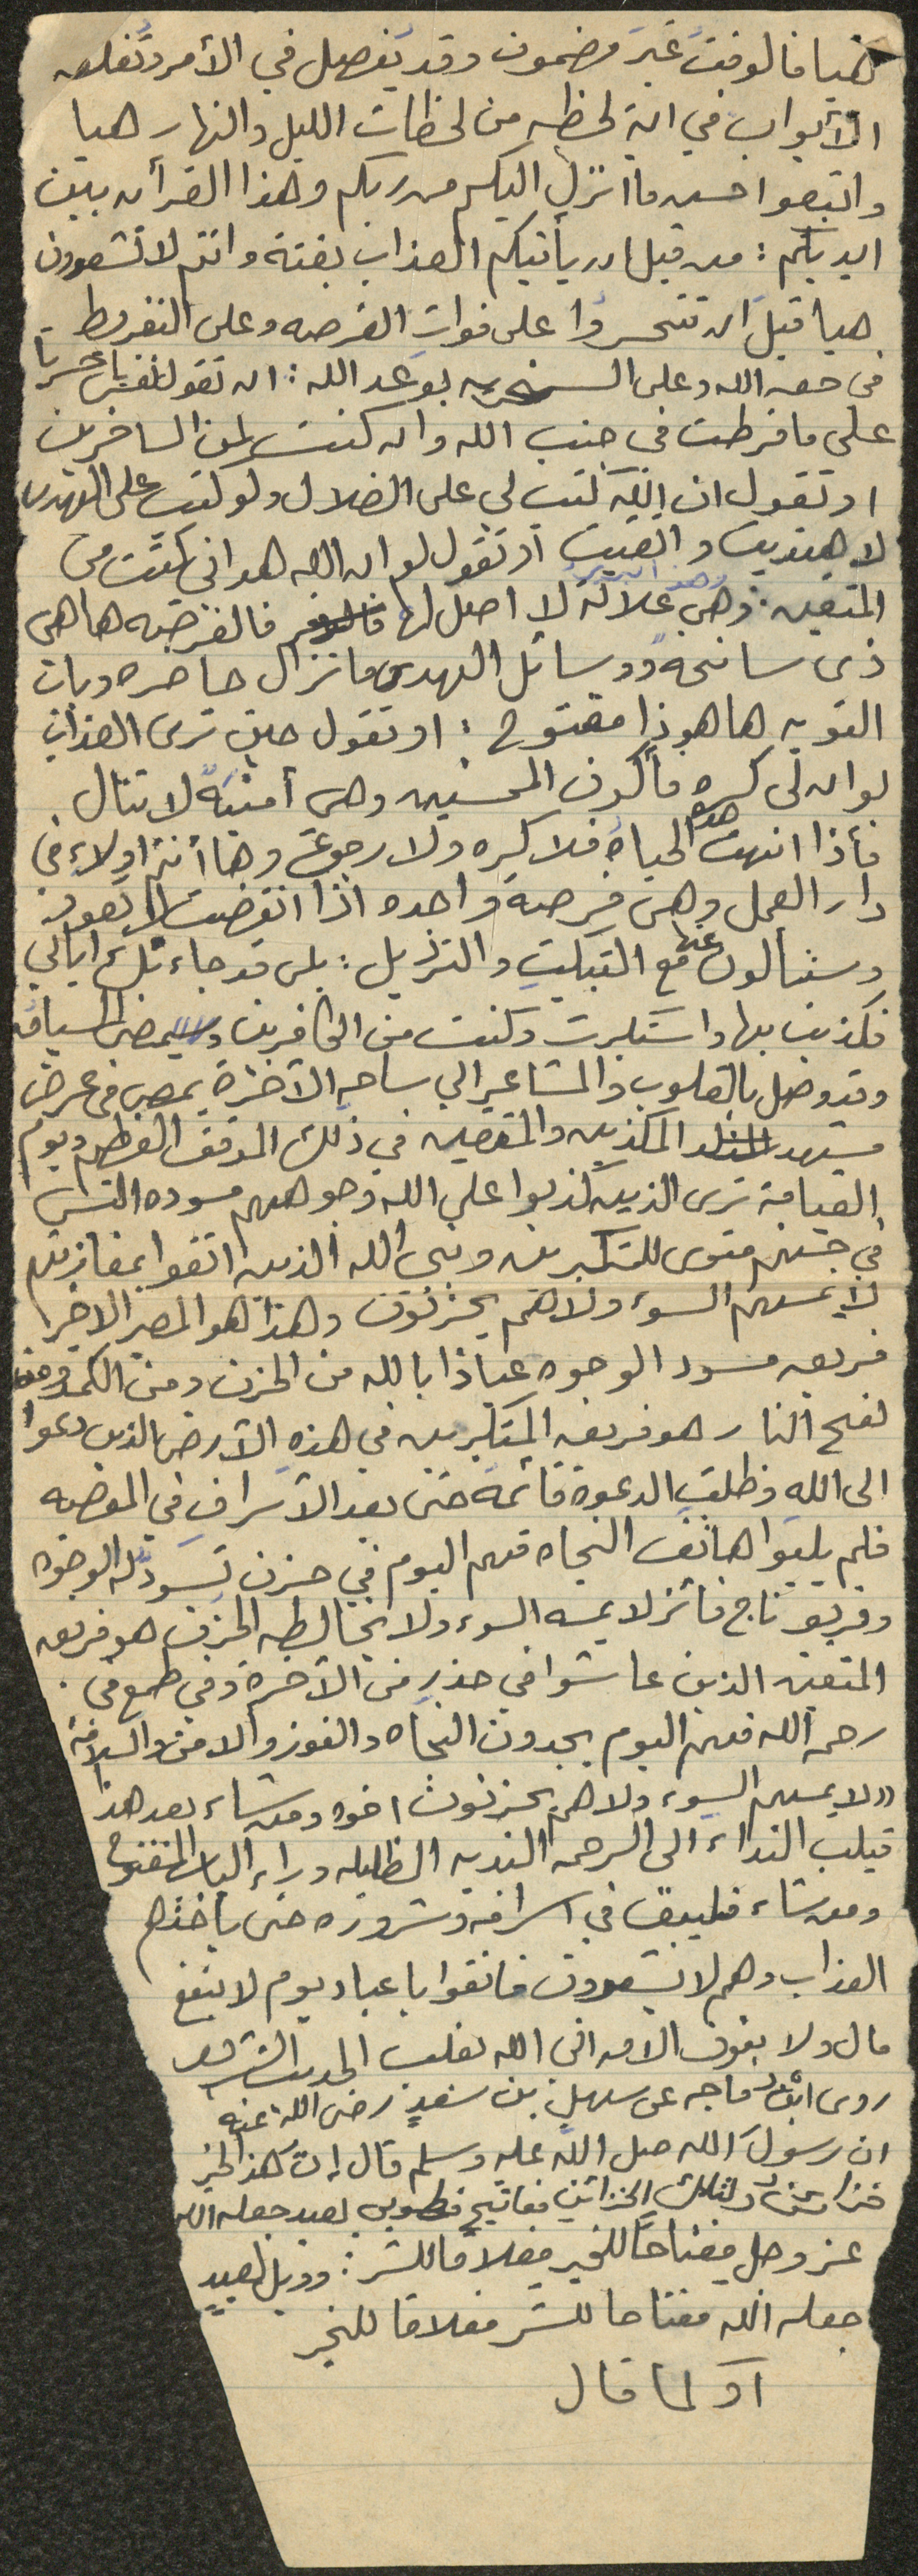 هيا فالوقت غير مضمون وقد يفصل في الأمر وتغلق
الأبواب في اية لحظه من لحظات الليل والنهار هيا
واتبعوا احسن ما انزل اليكم من ربكم وهذا القرأن بين
ايديكم : من قبل ان يأتيكم العذاب بغتة وانتم لا تشعرون
هيا قبل ان تتحسروا على فوات الفرصه وعلى التفريط
في حق الله وعلى السخريه بوعد الله : ان تقول نفس يا حسرتا
على ما فرطت في جنب الله وان كنت لمن الساخرين
او تقول ان الله كتب لي على الضلال ولو كتب على الهدى
لاهتديت واتقيت او تقول لو ان الله هداني لكنت من
المتقين : وهي علالة لا اصل لها فالفرصه هاهي
ذى سانحة ووسائل الهدى ما تزال حاضره وباب
التوبه ها هو ذا مفتوح : او تقول حين ترى العذاب
لو ان لى كره فأكون من المحسنين وهى أمنية لا تنال
فأذا انتهت هذه الحياة فلا كره ولا رجوع وها أنتم اولاء في
دار العمل وهى فرصة واحده اذا انقضت لا تعود
وستسألون عنها مع التبكيت والترذيل : بلى قد جاءتك اياتي
فكذبت بها واستكبرت وكنت من الكافرين ويمضى السياق
وقد وصل بالقلوب والمشاعر الي ساحه الآخرة يمضى في عرض
مشهد المكذبين والمتقين في ذلك الموقف العظيم ويوم
القيامة ترى الذين كذبوا على الله وجوههم مسوده اليس
في جهنم مثوى للمتكبرين وينجى الله الذين اتقوا بمفازتهم
لا يمسهم السوء ولا هم يحزنون وهذا هو المصير الاخير
فريق مسود الوجوه عياذا بالله من الحزن ومن الكمد ومن
لفح النار هو فريق المتكبرين في هذه الأرض الذين دعوا
الى الله وظلت الدعوة قائمة حتى بعد الأسراف في المعصيه
فلم يلبوا هاتف النجاه فهم اليوم في حزن تسود له الوجوه
وفريق ناج فائز لا يمسه السوء ولا يخالطه الحزن هو فريق
المتقين الذين عاشوا في حذر من الآخرة وفي طمع في
رحمه الله فهم اليوم يجدون النجاه والفوز والامن والسلامة
" لا يمسهم السوء ولا هم يحزنون اخوه ومن شاء بعد هذا
فيلب النداء الى الرحمه النديه الظليله وراء الباب المفتوح
ومن شاء فليبق في اسرافه وشروده حتى يأخذهم
العذاب وهم لا يشعرون فاتقوا يا عباد يوم لا ينفع
مال ولا بنون الا من اتى الله بقلب الحديث الشريف
روى ابن ماجه عن سهل بن سعد رضى الله عنه
ان رسول الله صلى الله عليه وسلم قال ان هذا الخير
خزائن ولتلك الخزائن مفاتيح فطوبى لعبد جعله الله
عز وجل مفتاحاً للخير مغلاقا للشر : وويل لعبد
جعله الله مفتاحا للشر مغلاقا للخير
او كما قال